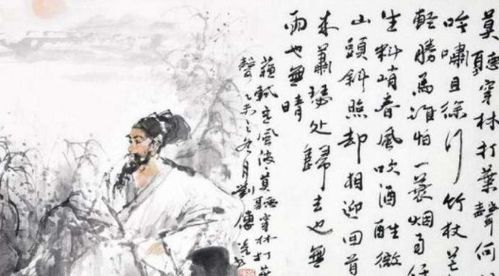 莫聽穿林打葉聲何
吟嘯且徐行竹杖芒
輕勝馬誰怕一蓑烟雨
生料峭春風吹酒醒微
山頭斜照却相迎回首
来蕭瑟處歸去也無
雨也無晴
蘇軾定風波莫聽穿林打葉
聲乙未之月劉